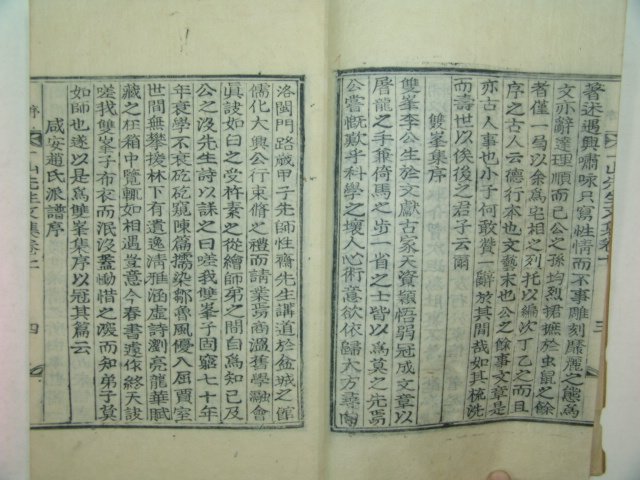 著述遇興嘯咏只寫性情而不事雕刻靡麗之態爲
文亦辭達理順而已公之孫均烈摭摭於虫鼠之餘
者僅一局以余爲宅相之列托以編次丁乙之而且
序之古人云德行本也文藝末也公之餘事文章是
亦古人事也小子何敢贊一辭於其間哉如其梳洗
而壽世以俟後之君子云爾
雙峯集序
雙峯李公生於文獻古家天資穎悟弱冠成文章以
屠龍之手兼倚馬之步一省之士皆以爲莫之先焉
公嘗慨歎乎科學之壞人心術意欲依歸大方尋向
洛閩門路歲甲子先師性齋先生講道於盆城之館
儒化大興公行束脩之禮而請業焉商溫舊學融會
眞訣如白之受杵素之從繪師弟之間自爲知己及
公之沒先生詩以誄之曰嗟我雙峯子固窮七十年
年衰學不衰矻矻窺陳篇擩染鄒魯風優入屈賈室
世間無攀援林下有遺逸清雅涵虛詩瀏亮龍華賦
藏之在箱中覽輒如相遇豈意今春書遽作終天訣
嗟我雙峯子布衣而泯沒蓋慟惜之深而知弟子莫
如師也遂以是爲雙峯集序以冠其篇云
咸安趙氏派譜序
序
一山先生文集卷之一
三
四